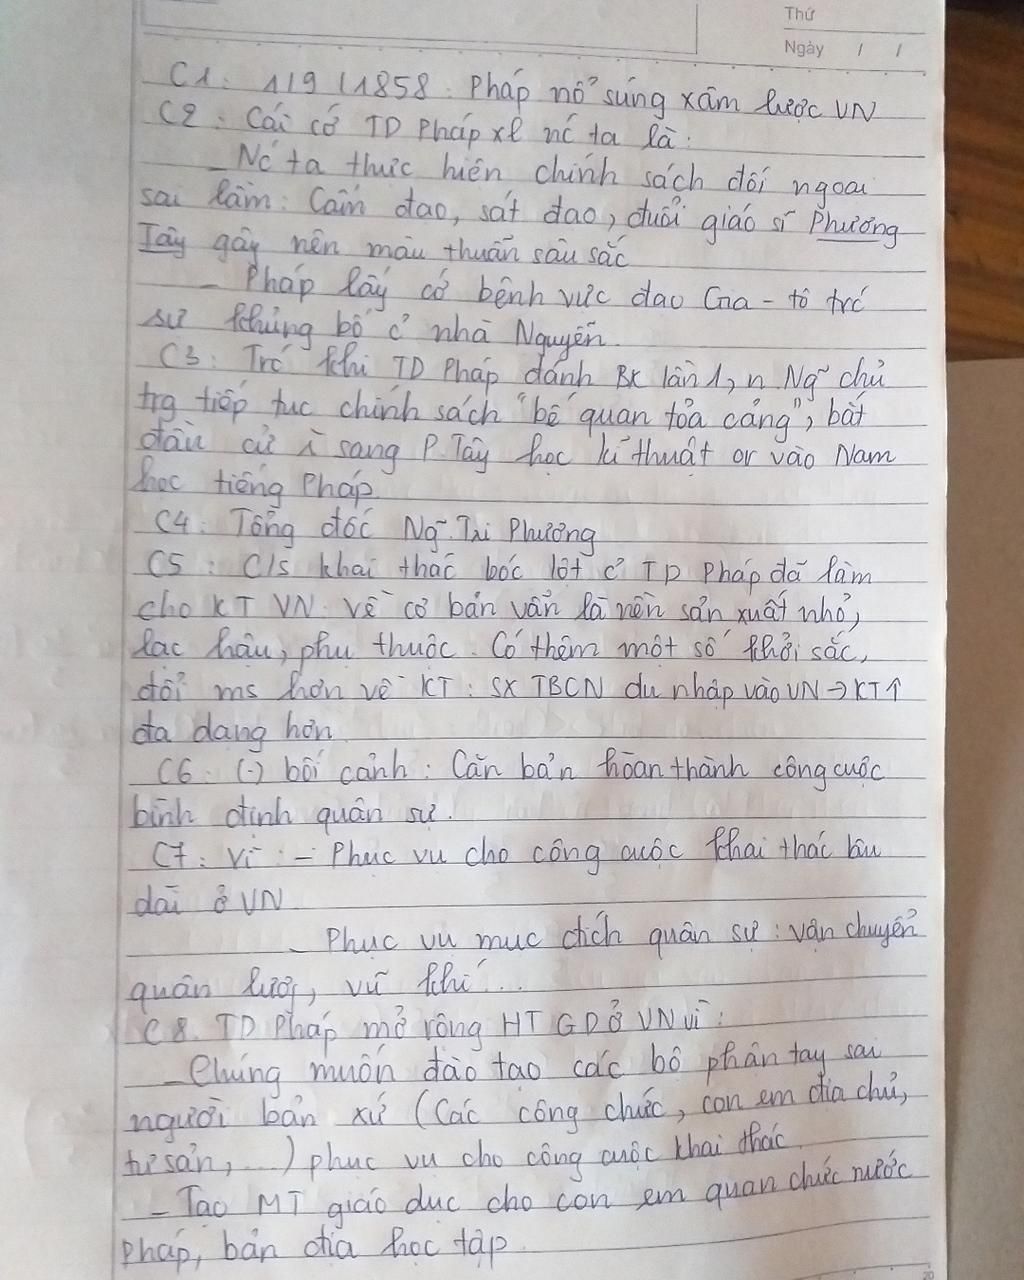 Thứ
Ngày / /
C1: 1/9/1858: Pháp nổ súng xâm lược VN
C2: Cái cớ TD Pháp xl nc ta là:
_ Nc ta thực hiện chính sách đối ngoại
sai lầm: Cấm đạo, sát đạo, đuổi giáo sĩ Phương
Tây gây nên mâu thuẫn sâu sắc
- Pháp lấy cớ bênh vực đạo Gia-tô trc
sự khủng bố củ nhà Nguyễn.
C3: Trc khi TD Pháp đánh BK lần 1, n Ng˜ chủ
trg tiếp tục chính sách "bế quan tỏa cảng", bắt
đầu cử sang P.Tây học kĩ thuật or vào Nam
học tiếng Pháp.
C4: Tổng đốc Ng˜ Tri Phương
C5: C/s khai thác bóc lột củ TD Pháp đã làm
cho KT VN về cơ bản vẫn là nền sản xuất nhỏ,
lạc hậu, phụ thuộc. Có thêm một số khởi sắc,
đổi ms hơn về KT: SX TBCN du nhập vào VN → KT↑
đa dạng hơn
C6: (-) bối cảnh: Căn bản hoàn thành công cuộc
bình định quân sự.
C7: Vì: - Phục vụ cho công cuộc khai thác lâu
dài ở VN
_ Phục vụ mục đích quân sự: vận chuyển
quân lược, vũ khí...
C8. TD Pháp mở rộng HT GD ở VN vì:
_ Chúng muốn đào tạo các bộ phận tay sai
người bản xứ (Các công chức, con em địa chủ,
tư sản,...) phục vụ cho công cuộc khai thác.
- Tạo MT giáo dục cho con em quan chức nước
Pháp, bản địa học tập.